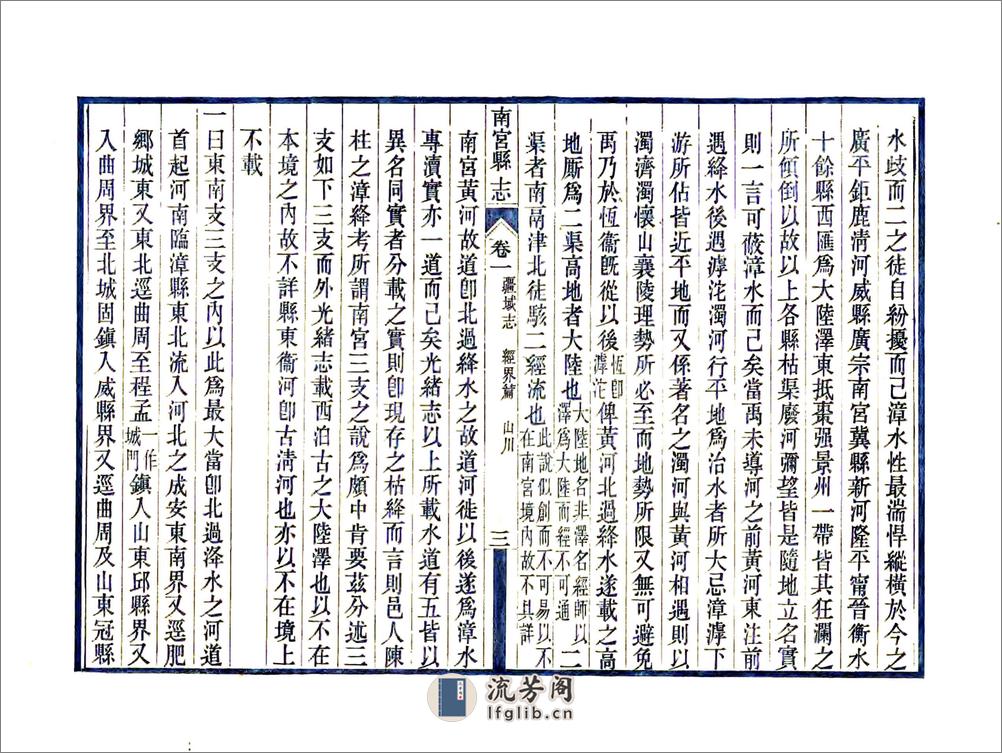 水歧而二之徒自紛擾而已漳水性最湍悍縱橫於今之
廣平鉅鹿淸河威縣廣宗南宮冀縣新河隆平甯晉衡水
十餘縣西匯爲大陸澤東抵棗强景州一帶皆其狂瀾之
所傾倒以故以上各縣枯渠廢河彌望皆是隨地立名實
則一言可蔽漳水而已矣當禹未導河之前黃河東注前
遇絳水後遇滹沱濁河行平地爲治水者所大忌漳滹下
游所佔皆近平地而又係著名之濁河與黃河相遇則以
濁濟濁懷山襄陵理勢所必至而地勢所限又無可避免
禹乃於恆衞旣從以後恆卽滹沱俾黃河北過絳水遂載之高
地厮爲二渠高地者大陸也大陸地名非澤名經師以澤爲大陸而經不可通二
渠者南鬲津北徒駭二經流也此說似創而不可易以不在南宮境內故不具詳
南宮縣志 卷一 疆域志 經界篇 山川 三
南宮黃河故道卽北過絳水之故道河徙以後遂爲漳水
專瀆實亦一道而已矣光緒志以上所載水道有五皆以
異名同實者分載之實則卽現存之枯絳而言則邑人陳
柱之漳絳考所謂南宮三支之說爲頗中肯要茲分述三
支如下三支而外光緒志載西泊古之大陸澤也以不在
本境之內故不詳縣東衞河卽古淸河也亦以不在境上
不載
一曰東南支三支之內以此爲最大當卽北過洚水之河道
首起河南臨漳縣東北流入河北之成安東南界又逕肥
鄉城東又東北逕曲周至程孟一作城門鎭入山東邱縣界又
入曲周界至北城固鎭入威縣界又逕曲周及山東冠縣
流芳阁
lfglib.cn